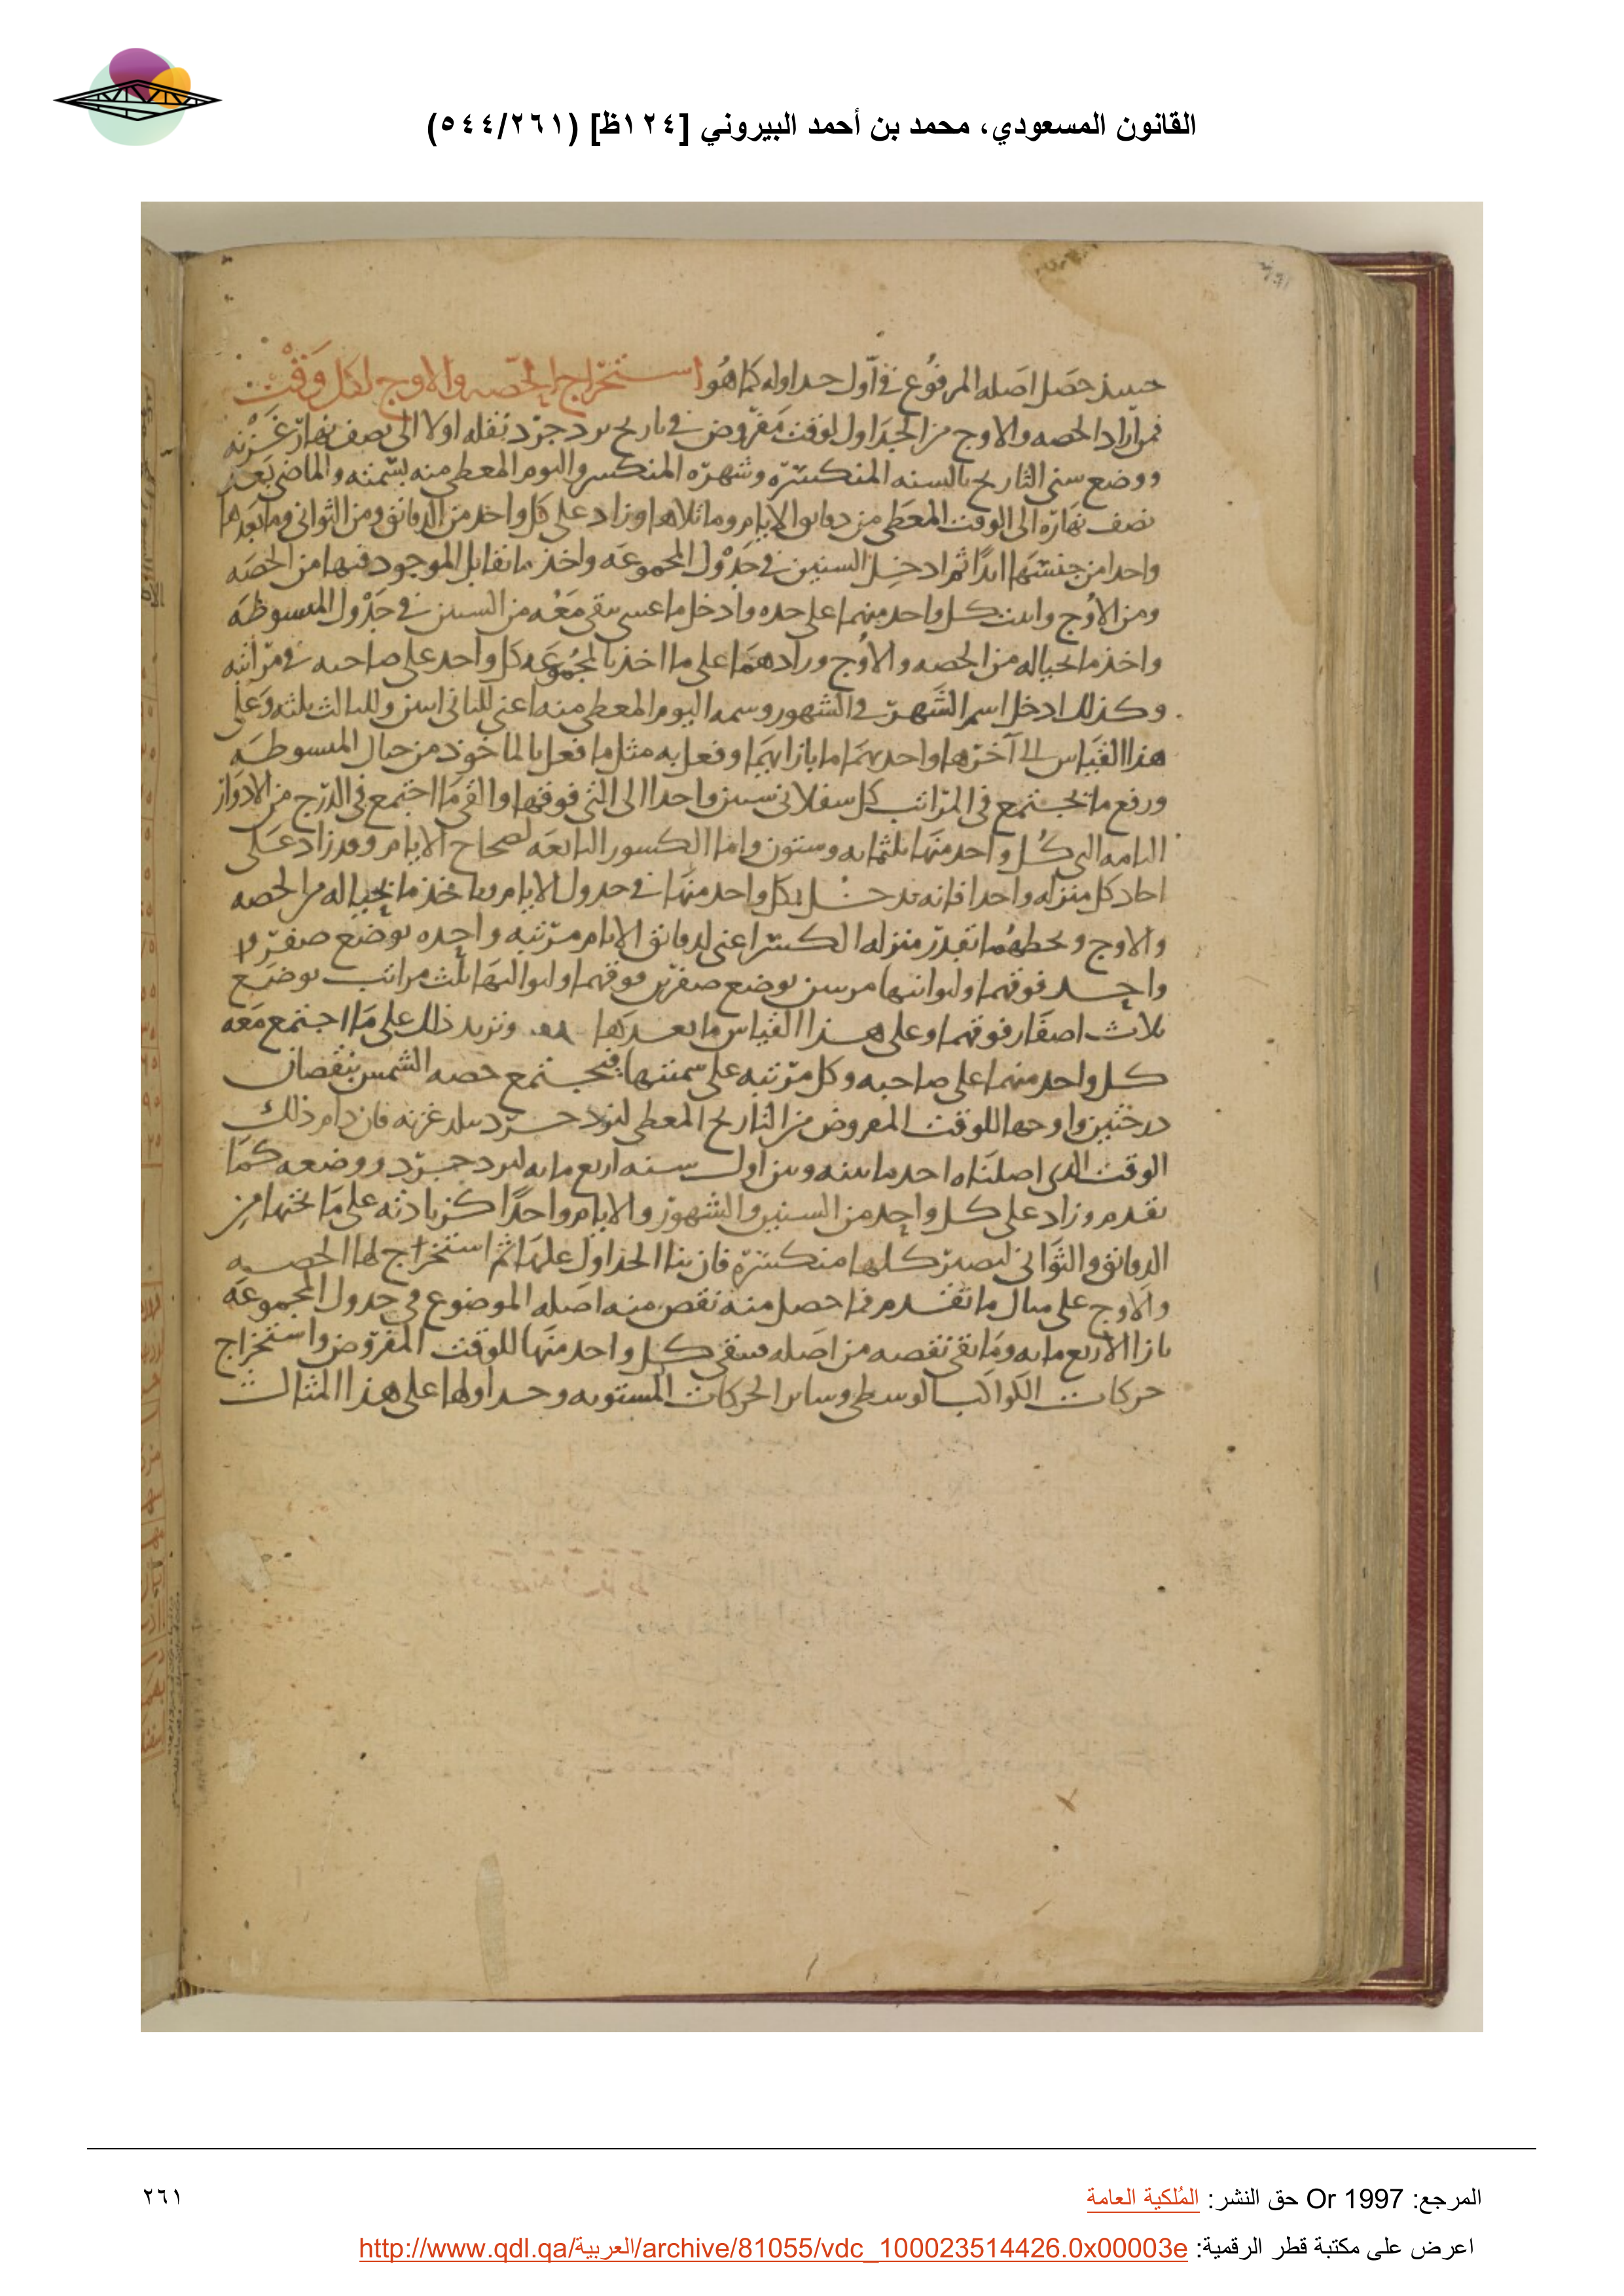 القانون المسعودي، محمد بن أحمد البيروني [١٢٤ظ] (٥٤٤/٢٦١)
حصل اصله المرفوع في اول حداوله كما هو استخراج الحصه والاوج لكل وقت
فمن اراد الحصه والاوج من الجداول لوقت مفروض في تاريخ يزدجرد نقله اولا الى نصف نهار غزنه
ووضع سنى التاريخ بالسنه المنكسره وشهره المنكسر واليوم المعطى منه بسمته والماضى بعد
نصف نهاره الى الوقت المعطى من دقايق الايام وما تلاها وزاد على كل واحد من الدقايق ومن الثوانى وما بعدها
واحدا من جنسها ابدا ثم ادخل السنين في جدول المجموعه واخذ ما تقابل الموجود فيها من الحصه
ومن الاوج واثبت كل واحد منهما على حده وادخل ما عسى بقى معه من السنين في جدول المبسوطه
واخذ ما بحياله من الحصه والاوج وزادهما على ما اخذ بالمجموعه كل واحد على صاحبه في مراتبه
وكذلك ادخل اسم الشهر في الشهور وسمه اليوم المعطى منه اعنى للثانى اثنين وللثالث ثلثه وعلى
هذا القياس الى آخرها واخذ بهما ما بازايهما وفعل به مثل ما فعل بالماخوذ من حيال المبسوطه
ورفع ما يجتمع في المراتب كل سفلانى ستين واحدا الى التى فوقها والقى ما اجتمع فى الدرج من الادوار
التامه التى كل واحد منها ثلثمايه وستون واما الكسور التابعه لصحاح الايام وقد زاد على
احاد كل منزله واحدا فانه يدخل بكل واحد منها في جدول الايام وياخذ ما بحياله من الحصه
والاوج ويحطهما بقدر منزله الكسر اعنى لدقايق الايام مرتبه واحده بوضع صفر
واحد فوقهما ولثوانيها مرتبتين بوضع صفرين فوقهما ولثوالثها ثلث مراتب بوضع
ثلاث اصفار فوقهما وعلى هذا القياس ما بعدها ونزيد ذلك على ما اجتمع معه
كل واحد منهما على صاحبه وكل مرتبه على سمتها فيجتمع حصه الشمس بنقصان
درجتين واوجها للوقت المفروض من التاريخ المعطى ليزدجرد ببلد غزنه فان دام ذلك
الوقت الذى اصلناه احد ما بينه وبين اول سنه اربع مايه ليزدجرد ووضعه كما
تقدم وزاد على كل واحد من السنين والشهور والايام واحدا كزيادته على ما تحتها من
الدقايق والثوانى لتصير كلها منكسره فان بنا الجداول عليها ثم استخراج لها الحصه
والاوج على مثال ما تقدم فما حصل منه نقص منه اصله الموضوع في جدول المجموعه
بازا الاربع مايه وما بقى نقصه من اصله فيبقى كل واحد منها للوقت المفروض واستخراج
حركات الكواكب الوسطى وساير الحركات المستويه وحداولها على هذا المثال
المرجع: Or 1997 حق النشر: المُلكية العامة
٢٦١
اعرض على مكتبة قطر الرقمية: http://www.qdl.qa/العربية/archive/81055/vdc_100023514426.0x00003e